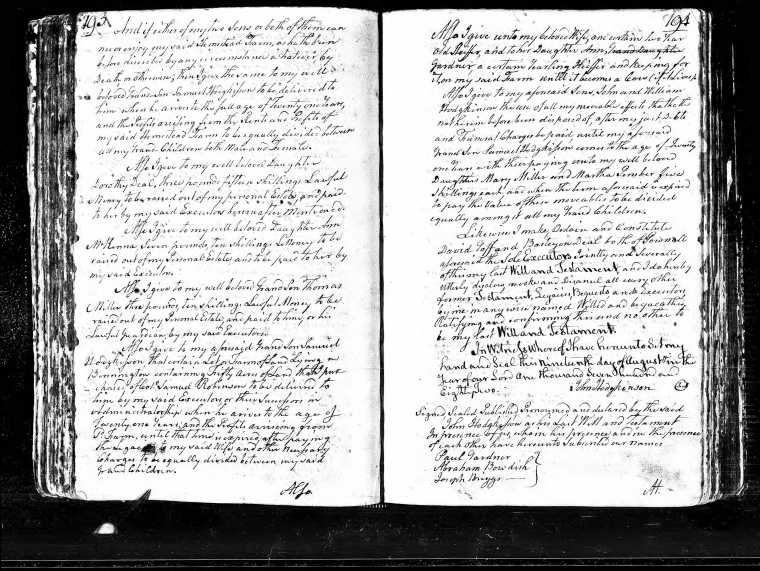 193
And if either of my two Sons or both of them can
never enjoy my said Homestead Farm, as hath been
before devised by any circumstance whatever, by
Death or otherwise, then I give the same to my well
beloved Grand Son Samuel Hodgkisson to be delivered to
him when he arrives to the full age of Twenty one Years,
and the Profits arising from the Rents and Profits of
my said Homestead Farm to be equally divided between
all my Grand Children both Male and Female.
Also I give to my well beloved Daughter
Dorothy Deal, three pounds fifteen Shillings Lawful
Money to be raised out of my personal Estate, and paid
to her by my said Executors hereinafter Mentioned.
Also I give to my well beloved Daughter Ann
McKenna Seven pounds, ten Shillings L. Money to be
raised out of my Personal Estate, and to be paid to her by
my said Executors.
Also I give to my well beloved Grand Son Thomas
Miller three pounds, ten Shillings Lawful Money to be
raised out of my Personal Estate, and paid to him, or his
Lawful Guardian, by my said Executors.
Also I give to my aforesaid Grand Son Samuel
Hodgkisson that certain Lot or Farm of Land Lying in
Bennington containing Fifty Acres of Land that I pur
chased of Col. Samuel Robinson to be delivered to
him by my said Executors or their Successors in
Administratorship when he arives to the age of
Twenty one Years, and the Profits arriseing from
Sd. Farm, until that time is expired, after paying
the Legacies to my said Wife and other Necessary
Charges to be equally divided between my said
Grand Children.
Also
194
Also I give unto my beloved Wife, one certain two Year
Old Heifer, and to her Daughter Ann, Grand Daughter
Gardner a certain Yearling Heifer and Keeping for
it on my said Farm until it becomes a Cow (if it lives)
Also I give to my aforesaid Sons, John and William
Hodgkisson the use of all my movable effects that hath
not herein before been disposed of, after my just Debts
and Funeral Charges be paid until my aforesaid
Grand Son Samuel Hodgkisson comes to the age of Twenty
one Years with their paying unto my well beloved
Daughters Mary Miller and Martha Brimber five
Shillings each and when the time aforesaid is expired
to pay the Value of those moveables to be divided
equally amongst all my Grand Children.
Likewise I make Ordain and Constitute
David Goff and Barleyon Deal both of Pownall
aforesaid the Sole Executors, Jointly and Severally
of this my last Will and Testament, and I do hereby
utterly disalow, revoke and disanul all every other
former Testament, Legacies, Bequests and Executors
by me in any wise named, Willed and bequeathed
Ratifying and confirming this and no other to
be my last Will and Testament.
In Witness Whereof I have hereunto set my
hand and Seal this nineteenth day of August in the
Year of our Lord One thousand Seven Hundred and
Eighty two.
John Hodgkenson
Signed Sealed Published Pronounced and declared by the said
John Hodgkisson as his Last Will and Testament
In presence of us, who in his presence and in the presence
of each other have hereunto Subscribed our names
Paul Gardner
Abraham Bowdish
Joseph Briggs
At.